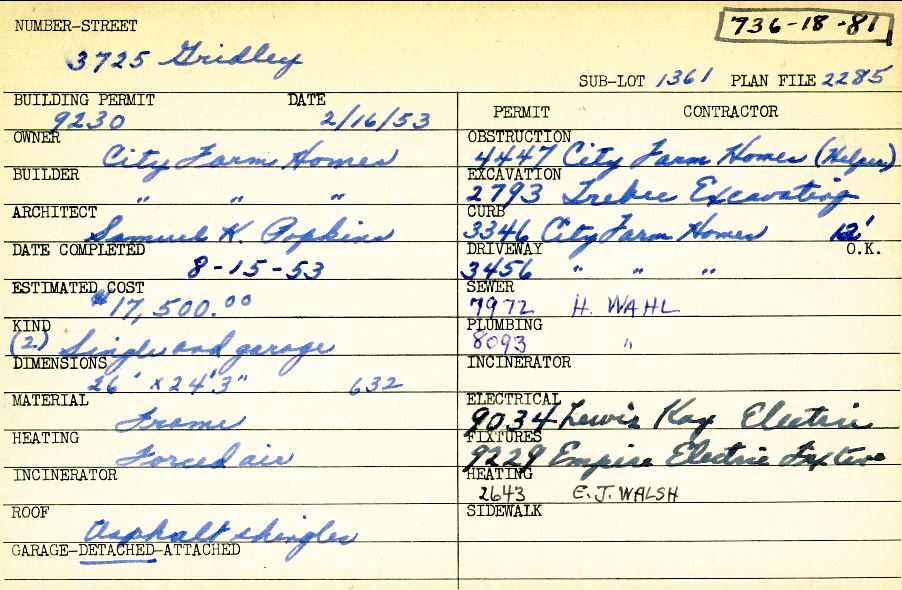 NUMBER-STREET
736-18-81
3725 Gridley
SUB-LOT 1361 PLAN FILE 2285
BUILDING PERMIT DATE
9230 2/16/53
OWNER
City Farm Homes
BUILDER
" " "
ARCHITECT
Samuel K. Popkins
DATE COMPLETED
8-15-53
ESTIMATED COST
$17,500.00
KIND
(2) Single and garage
DIMENSIONS
26' x 24'3" 632
MATERIAL
Frame
HEATING
Forced air
INCINERATOR
ROOF
Asphalt shingles
GARAGE-DETACHED-ATTACHED
PERMIT CONTRACTOR
OBSTRUCTION
4447 City Farm Homes (Helper)
EXCAVATION
2793 Trebec Excavating
CURB
3346 City Farm Homes 12'
DRIVEWAY O.K.
3456 " " "
SEWER
7972 H. WAHL
PLUMBING
8093 "
INCINERATOR
ELECTRICAL
9034 Lewis Kay Electric
FIXTURES
9229 Empire Electric Fixture
HEATING
2643 E.J. WALSH
SIDEWALK